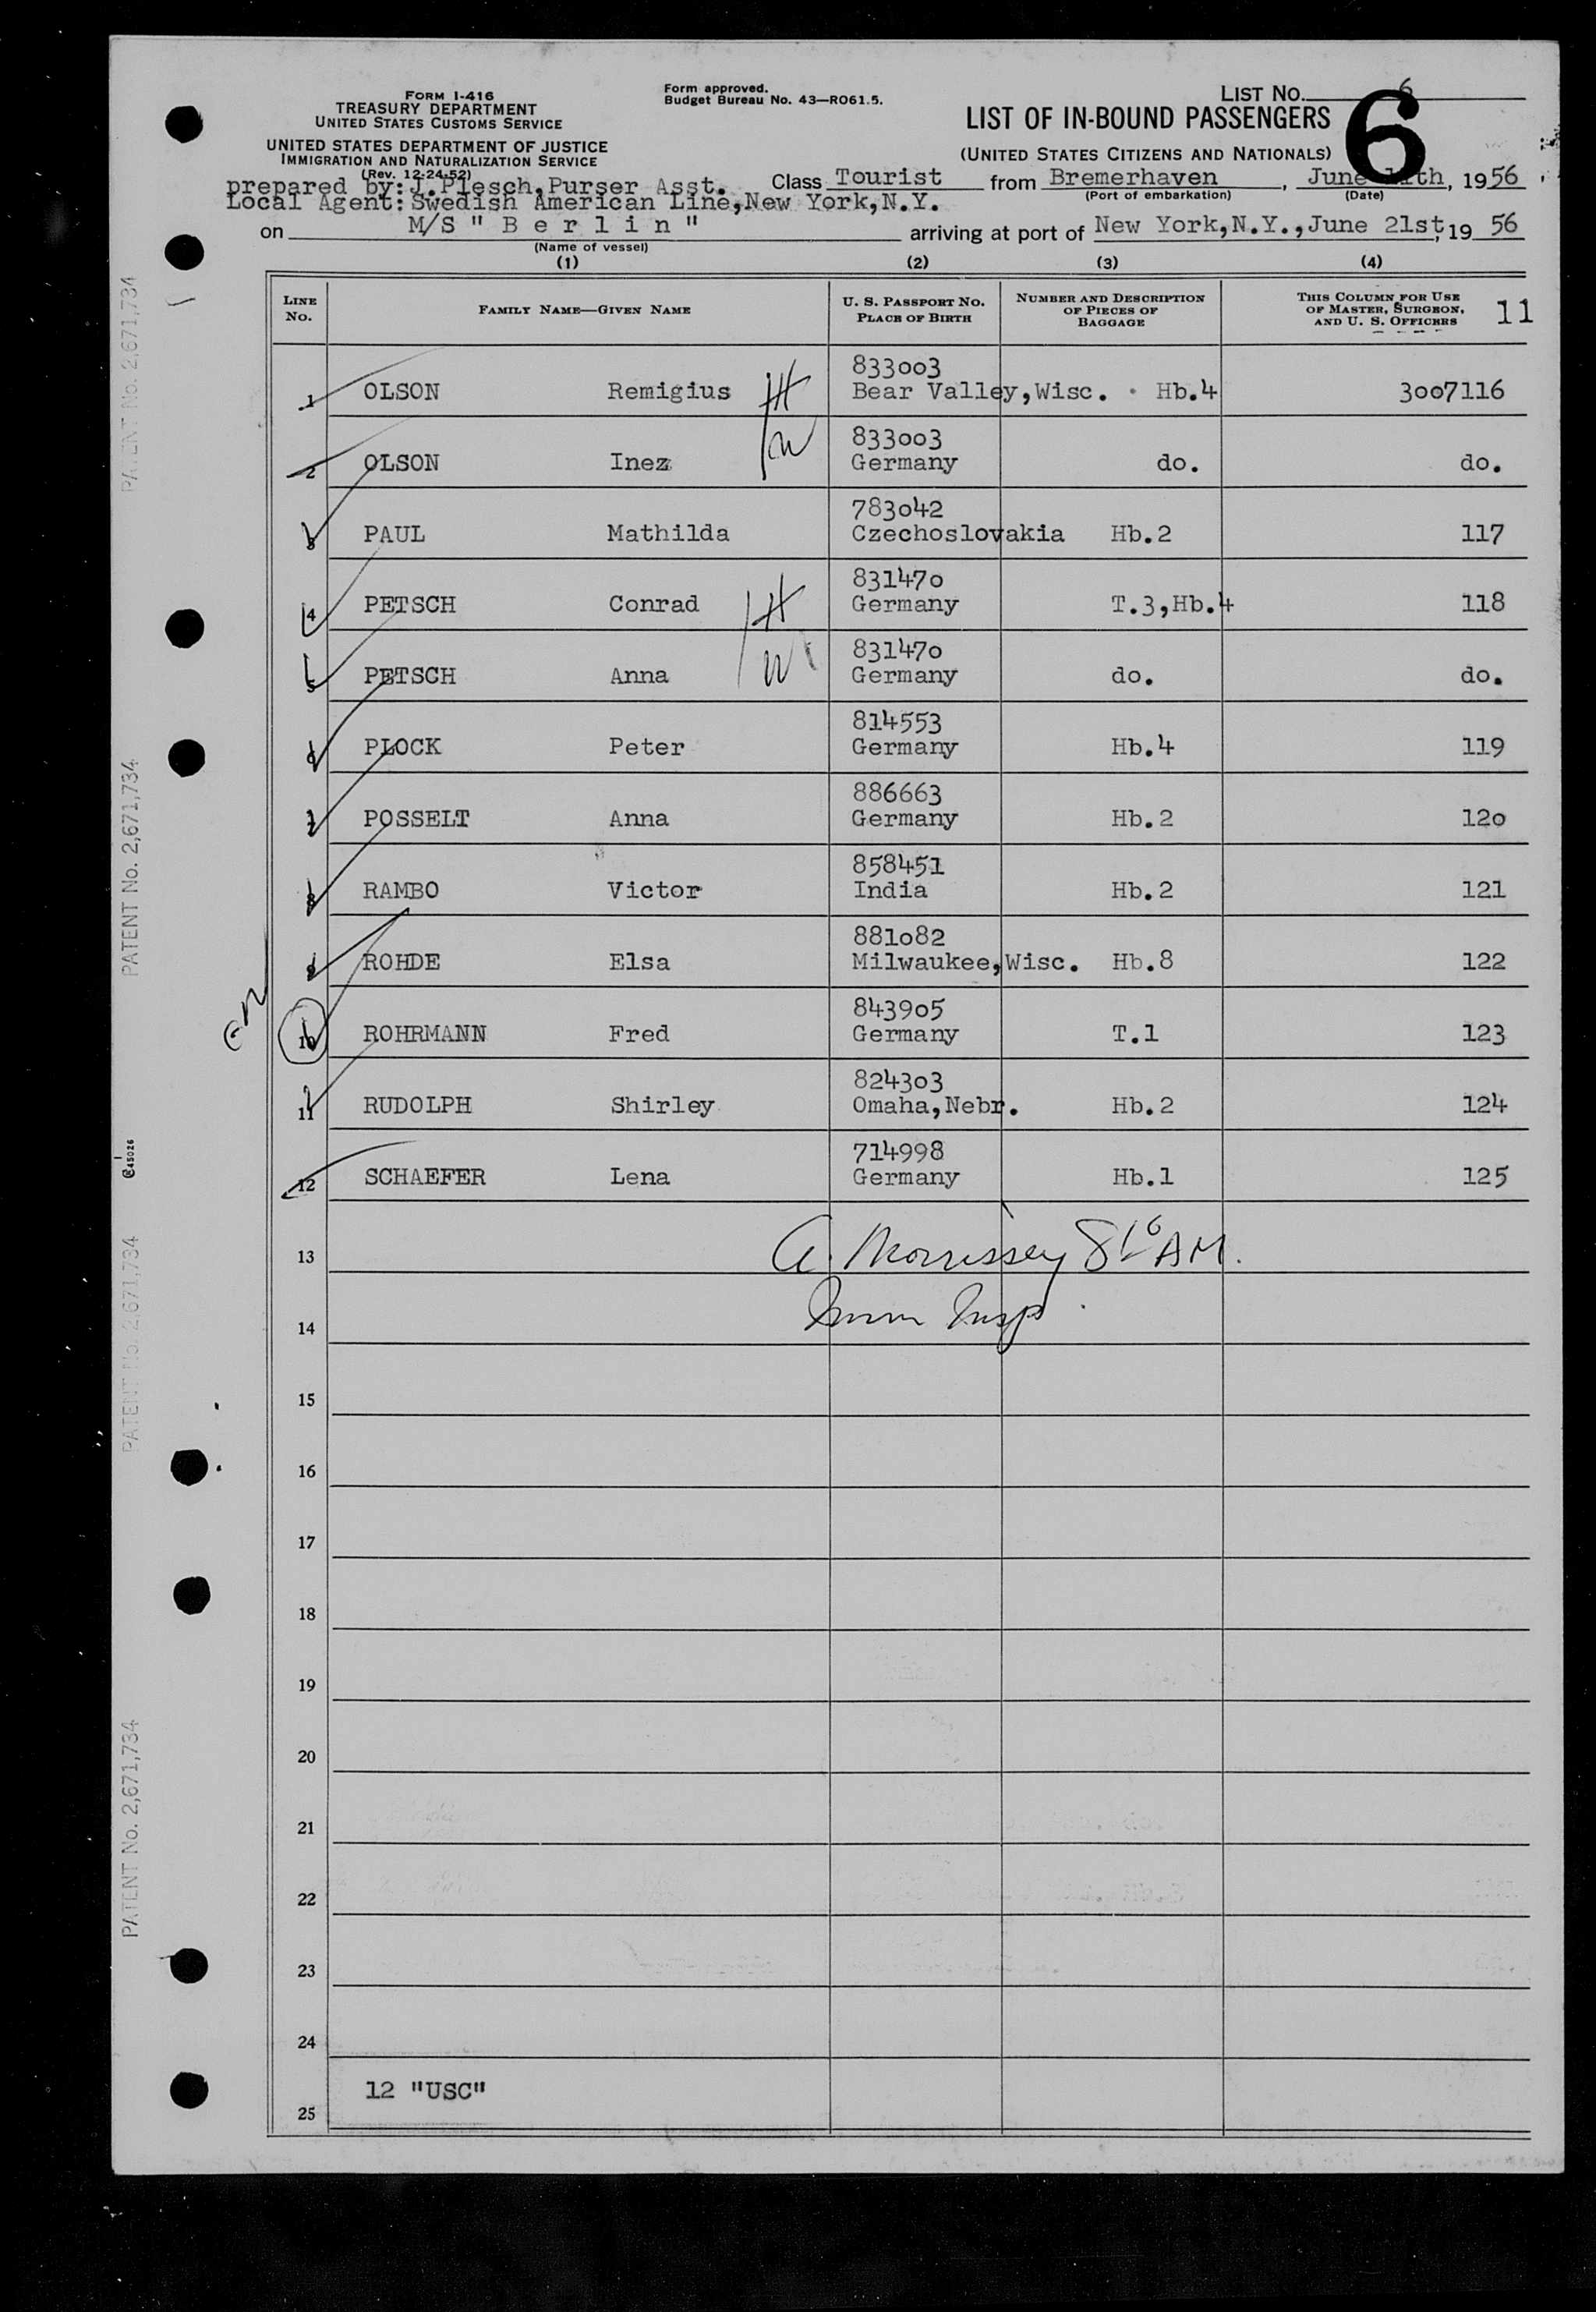 FORM I-416
TREASURY DEPARTMENT
UNITED STATES CUSTOMS SERVICE
UNITED STATES DEPARTMENT OF JUSTICE
IMMIGRATION AND NATURALIZATION SERVICE
(Rev. 12-24-52)
Form approved.
Budget Bureau No. 43—RO61.5.
LIST NO. 6
6
LIST OF IN-BOUND PASSENGERS
(UNITED STATES CITIZENS AND NATIONALS)
prepared by: J.Plesch,Purser Asst. Class Tourist from Bremerhaven, June th, 1956
(Port of embarkation) (Date)
Local Agent: Swedish American Line,New York,N.Y.
on M/S " B e r l i n " arriving at port of New York,N.Y.,June 21st, 19 56
(Name of vessel)
(1) (2) (3) (4)
LINE NO. FAMILY NAME—GIVEN NAME U. S. PASSPORT NO. PLACE OF BIRTH NUMBER AND DESCRIPTION OF PIECES OF BAGGAGE THIS COLUMN FOR USE OF MASTER, SURGEON, AND U. S. OFFICERS 11
833003
1 OLSON Remigius H Bear Valley,Wisc. Hb.4 3007116
833003
2 OLSON Inez W Germany do. do.
783042
3 PAUL Mathilda Czechoslovakia Hb.2 117
831470
4 PETSCH Conrad H Germany T.3,Hb.4 118
831470
5 PETSCH Anna W Germany do. do.
814553
6 PLOCK Peter Germany Hb.4 119
886663
7 POSSELT Anna Germany Hb.2 120
858451
8 RAMBO Victor India Hb.2 121
881082
9 ROHDE Elsa Milwaukee,Wisc. Hb.8 122
843905
10 ROHRMANN Fred Germany T.1 123
824303
11 RUDOLPH Shirley Omaha,Nebr. Hb.2 124
714998
12 SCHAEFER Lena Germany Hb.1 125
13 A. Morrissey 8 10 AM.
14 Imm Insp.
15
16
17
18
19
20
21
22
23
24
12 "USC"
25
PATENT No. 2,671,734
PATENT No. 2,671,734
45026
PATENT No. 2,671,734
PATENT No. 2,671,734